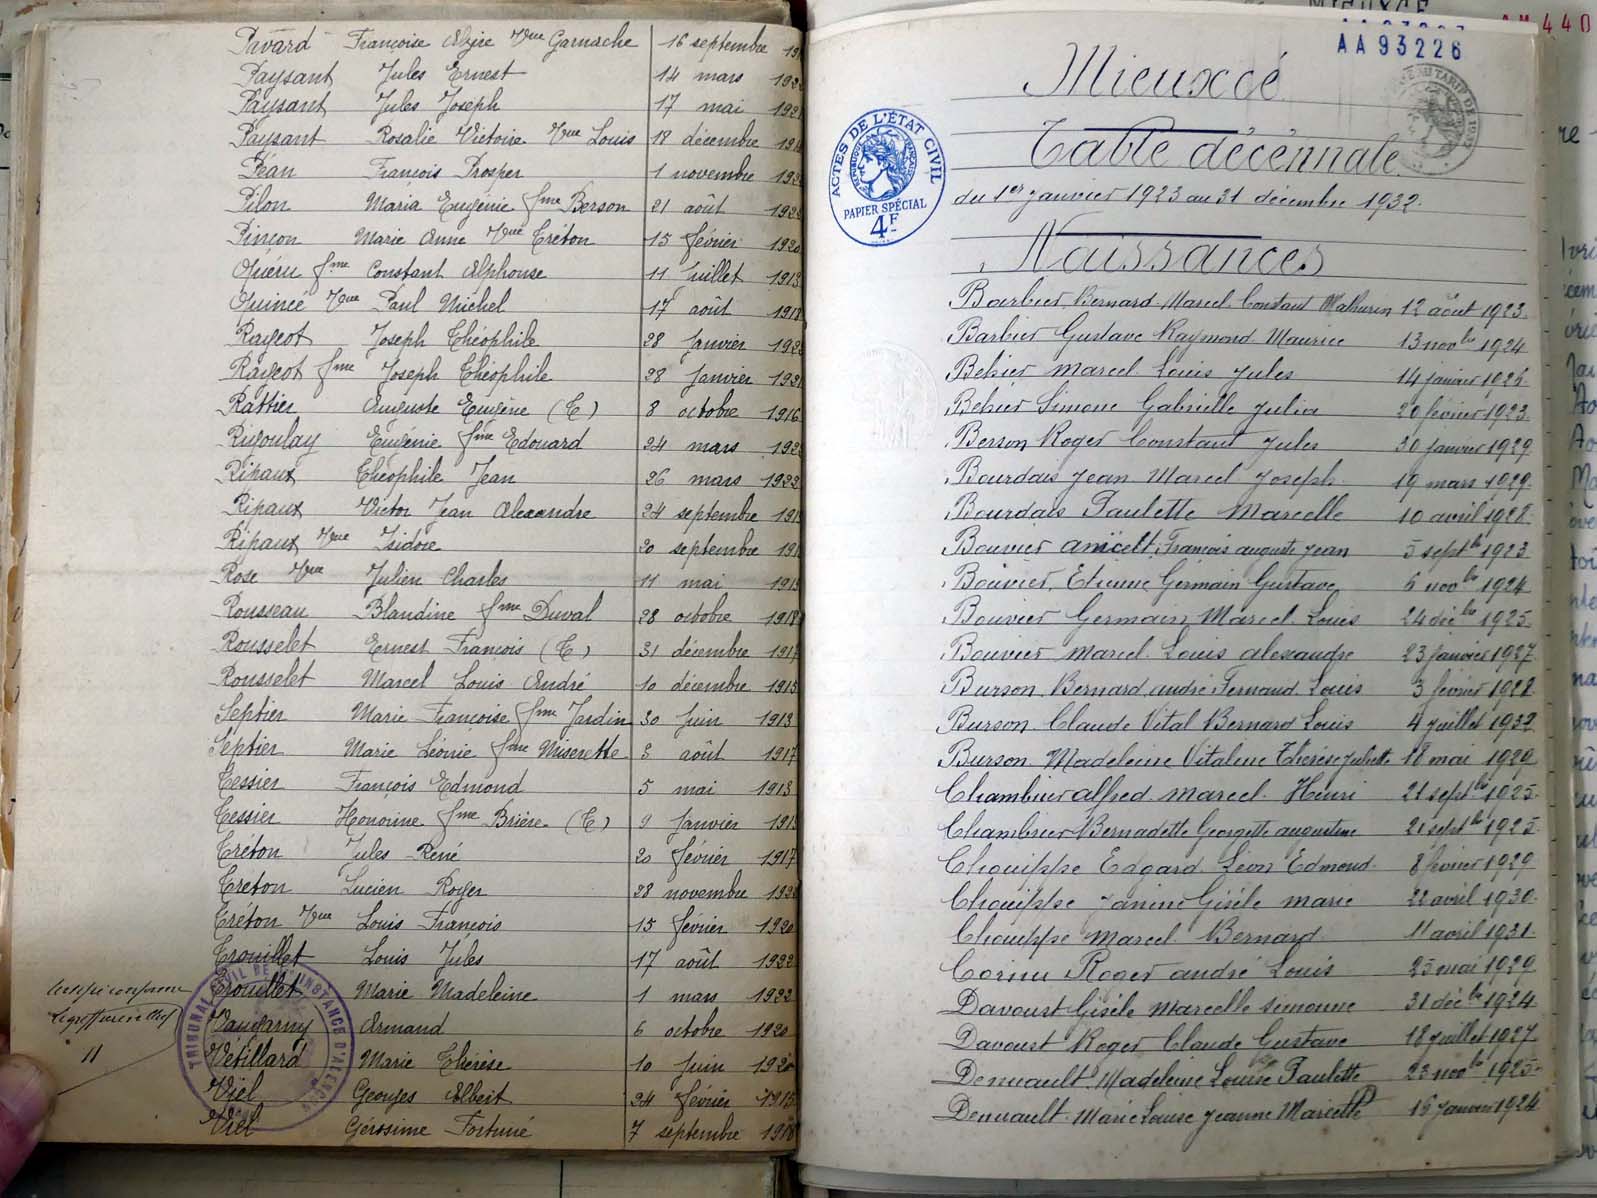 Pavard Françoise Alzire Vve Garnache 16 septembre
Paysant Jules Ernest 14 mars
Paysant Jules Joseph 17 mai
Paysant Rosalie Victoire Vve Louis 18 décembre
Péan François Prosper 1 novembre
Pilon Maria Eugénie fme Berson 21 août
Pinçon Marie Anne Vve Créton 15 février 1920
Quéru fme Constant Alphonse 11 juillet 1913
Quincé Vve Paul Michel 17 août 1918
Rageot Joseph Théophile 28 Janvier
Rageot fme Joseph Théophile 28 Janvier
Rattier Auguste Eugène (T) 8 octobre 1916
Rigoulay Eugénie fme Edouard 24 mars
Ripaux Théophile Jean 26 mars 1922
Ripaux Victor Jean Alexandre 24 septembre
Ripaux Vve Isidore 20 septembre
Rose Vve Julien Charles 11 mai 1913
Rousseau Blandine fme Duval 28 octobre 1918
Rousselet Ernest François (T) 31 décembre 1917
Rousselet Marcel Louis André 10 décembre 1915
Septier Marie Françoise fme Jardin 30 Juin 1913
Septier Marie Léonie fme Miserette 3 août 1917
Tessier François Edmond 5 mai 1913
Tessier Honorine fme Brière (T) 9 Janvier
Tréton Jules René 20 février 1917
Tréton Lucien Roger 28 novembre
Tréton Vve Louis François 15 février 1920
Trouillet Louis Jules 17 août 1922
Trouillet Marie Madeleine 1 mars 1922
Vaugarny Armand 6 octobre 1920
Vétillard Marie Thérèse 10 Juin 1920
Viel Georges Albert 24 février 1915
Viel Gérosime Fortuné 7 septembre
11
TRIBUNAL CIVIL DE 1re INSTANCE D'ALENÇON
AA 93226
Mieuxcé
Table décennale
du 1er Janvier 1923 au 31 décembre 1932.
ACTES DE L'ÉTAT CIVIL
PAPIER SPÉCIAL
4F
Naissances
Barbier Bernard Marcel Constant Mathurin 12 août 1923.
Barbier Gustave Raymond Maurice 13 novbre 1924
Behier Marcel Louis Jules 14 janvier
Behier Simone Gabrielle Julia 20 février 1923.
Berson Roger Constant Jules 30 janvier 1929.
Bourdais Jean Marcel Joseph 19 mars 1929.
Bourdais Paulette Marcelle 10 avril 1928.
Bouvier Anicett François auguste Jean 5 septbre 1923
Bouvier Etienne Germain Gustave 6 novbre 1924
Bouvier Germain Marcel Louis 24 décbre 1925.
Bouvier Marcel Louis alexandre 23 janvier 1927.
Burson Bernard andré Fernand Louis 3 février 1928.
Burson Claude Vital Bernard Louis 4 juillet 1932
Burson Madeleine Vitaline Thérèse Juliette 18 mai 1929
Chambrier alfred Marcel Henri 21 septbre 1925.
Chambrier Bernadette Georgette augustine 21 septbre 1925.
Chouippe Edgard Léon Edmond 8 février 1929
Chouippe Janine Gisèle Marie 22 avril 1930.
Chouippe Marcel Bernard 11 avril 1931.
Cornu Roger andré Louis 25 mai 1929
Davoust Gisèle Marcelle Simonne 31 décbre 1924.
Davoust Roger Claude Gustave 18 juillet 1927.
Denuault Madeleine Louise Paulette 23 novbre 1925.
Denuault Marie Louise Jeanne Marcelle 15 Janvier 1924